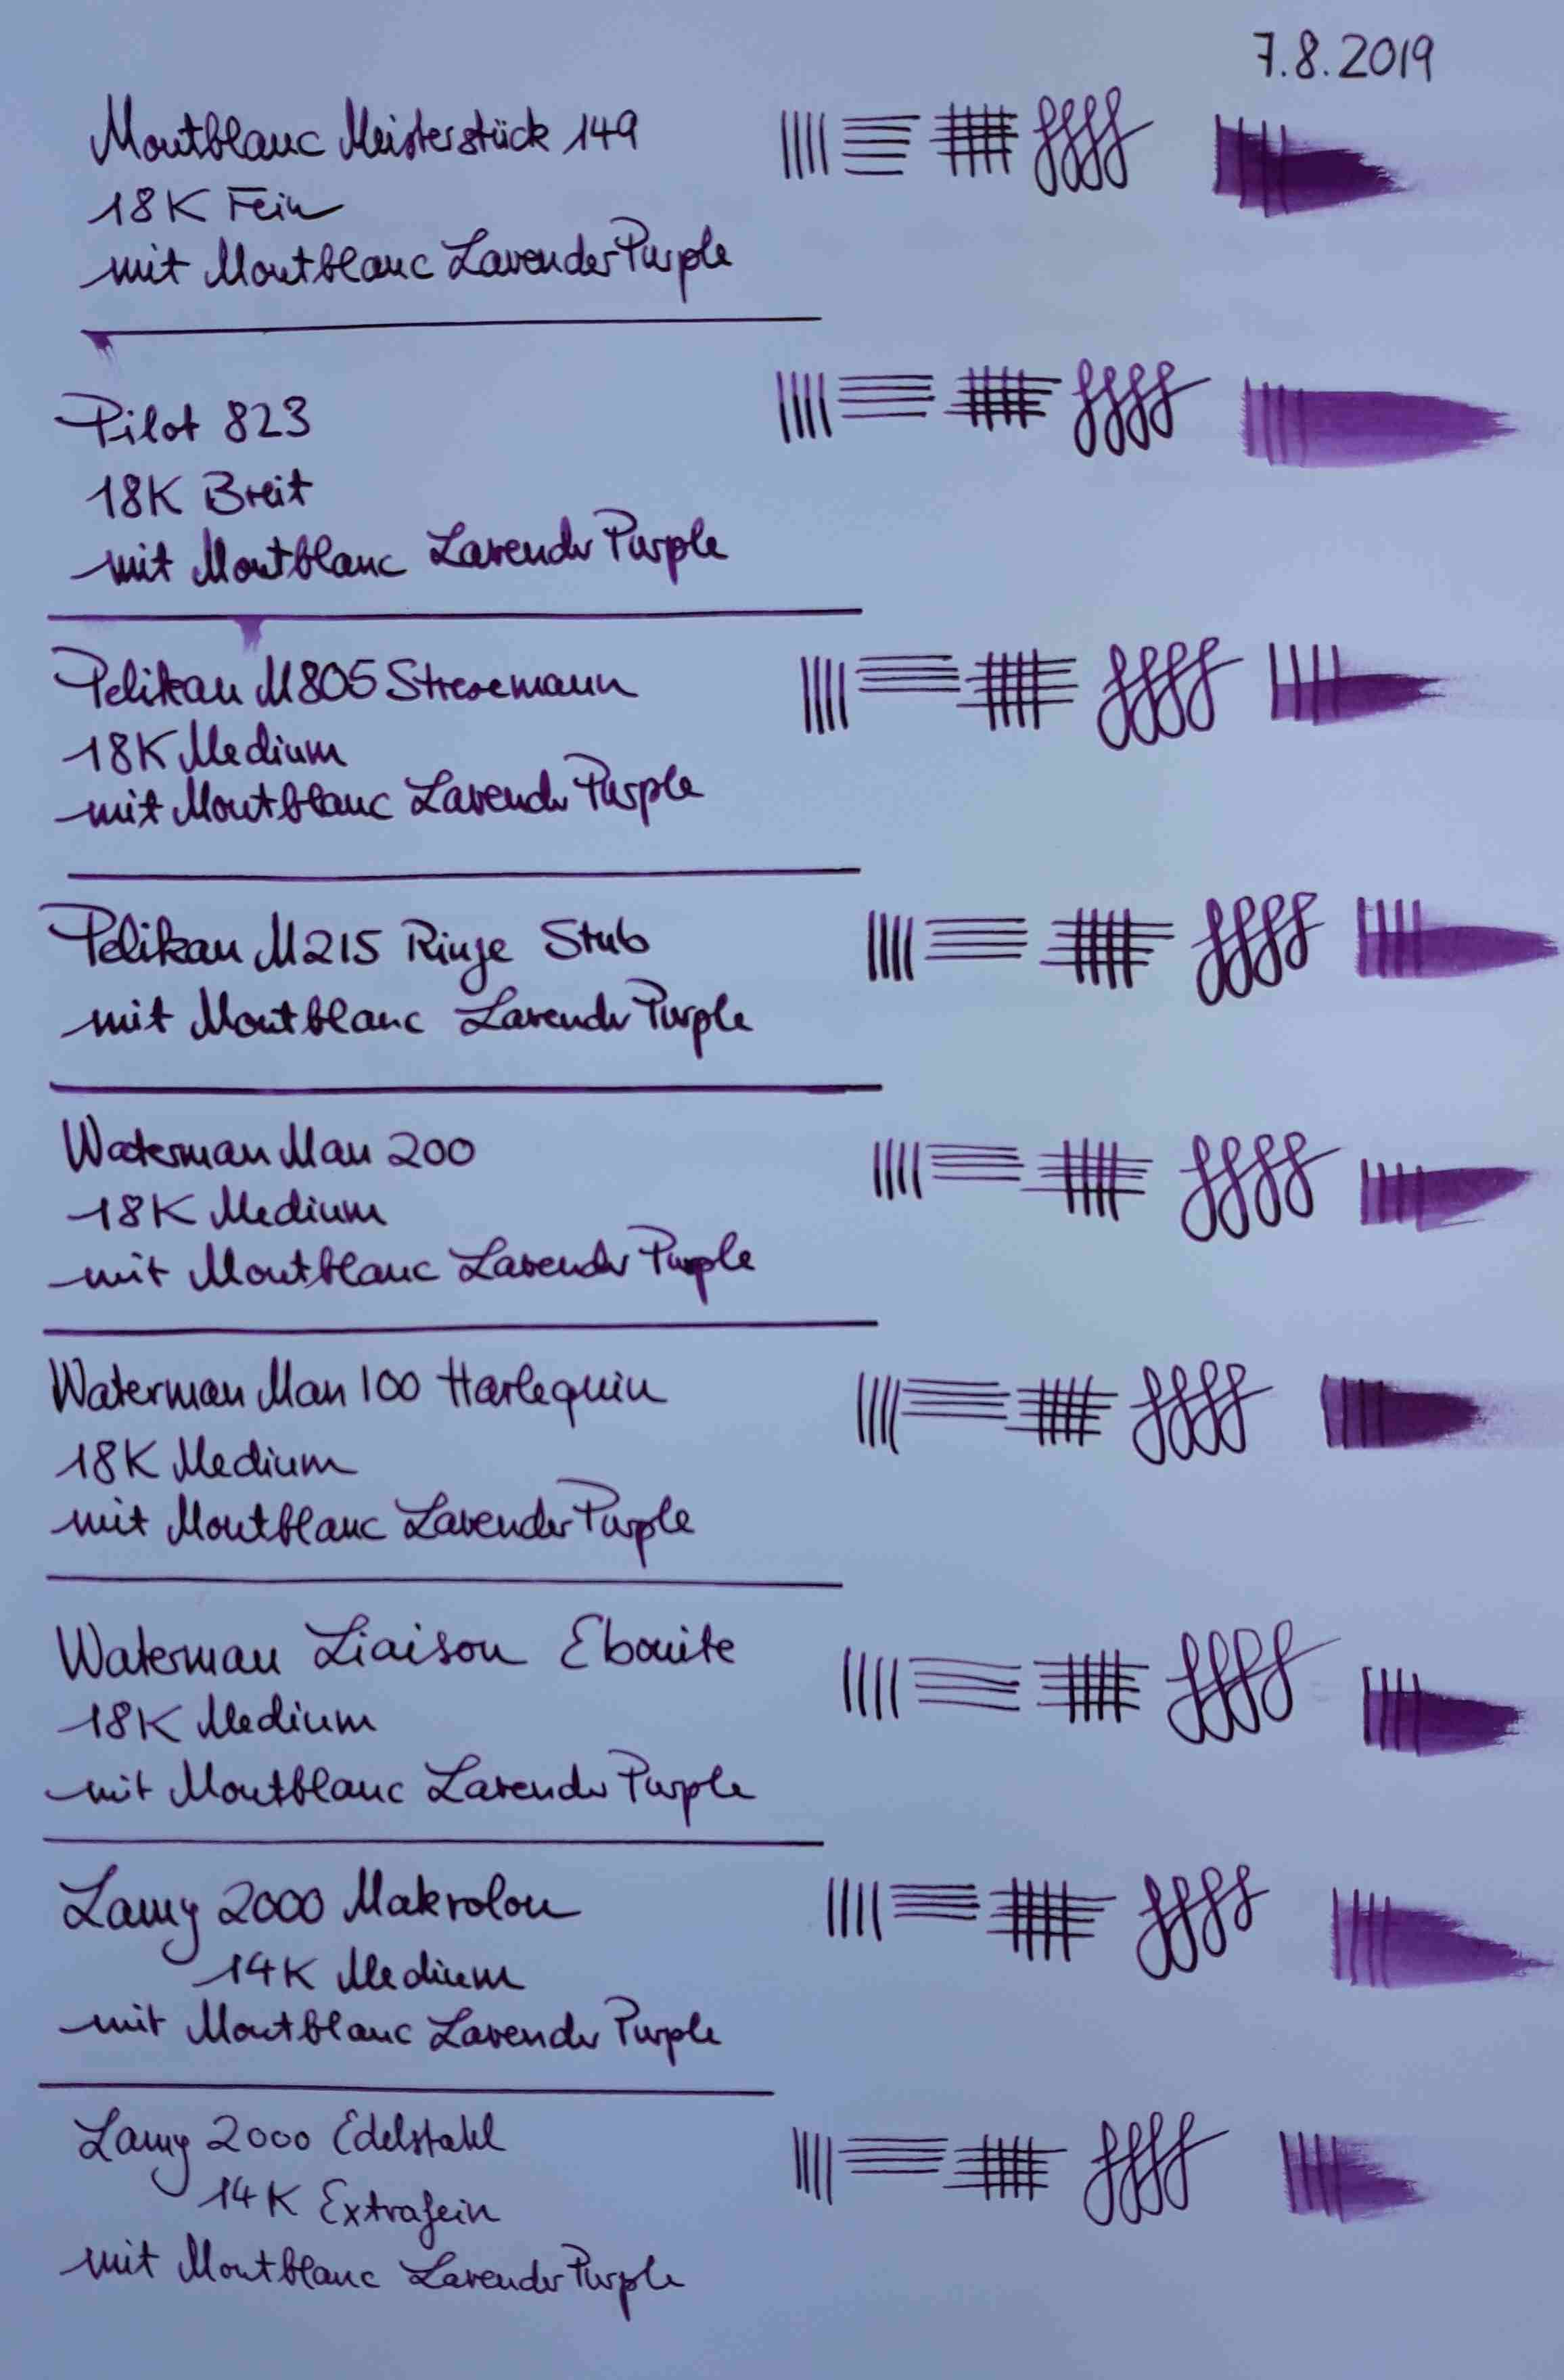 7.8.2019
Montblanc Meisterstück 149
18K Fein
mit Montblanc Lavender Purple
Pilot 823
18K Breit
mit Montblanc Lavender Purple
Pelikan M805 Stresemann
18K Medium
mit Montblanc Lavender Purple
Pelikan M215 Ringe Stub
mit Montblanc Lavender Purple
Waterman Man 200
18K Medium
mit Montblanc Lavender Purple
Waterman Man 100 Harlequin
18K Medium
mit Montblanc Lavender Purple
Waterman Liaison Ebonite
18K Medium
mit Montblanc Lavender Purple
Lamy 2000 Makrolon
14K Medium
mit Montblanc Lavender Purple
Lamy 2000 Edelstahl
14K Extrafein
mit Montblanc Lavender Purple